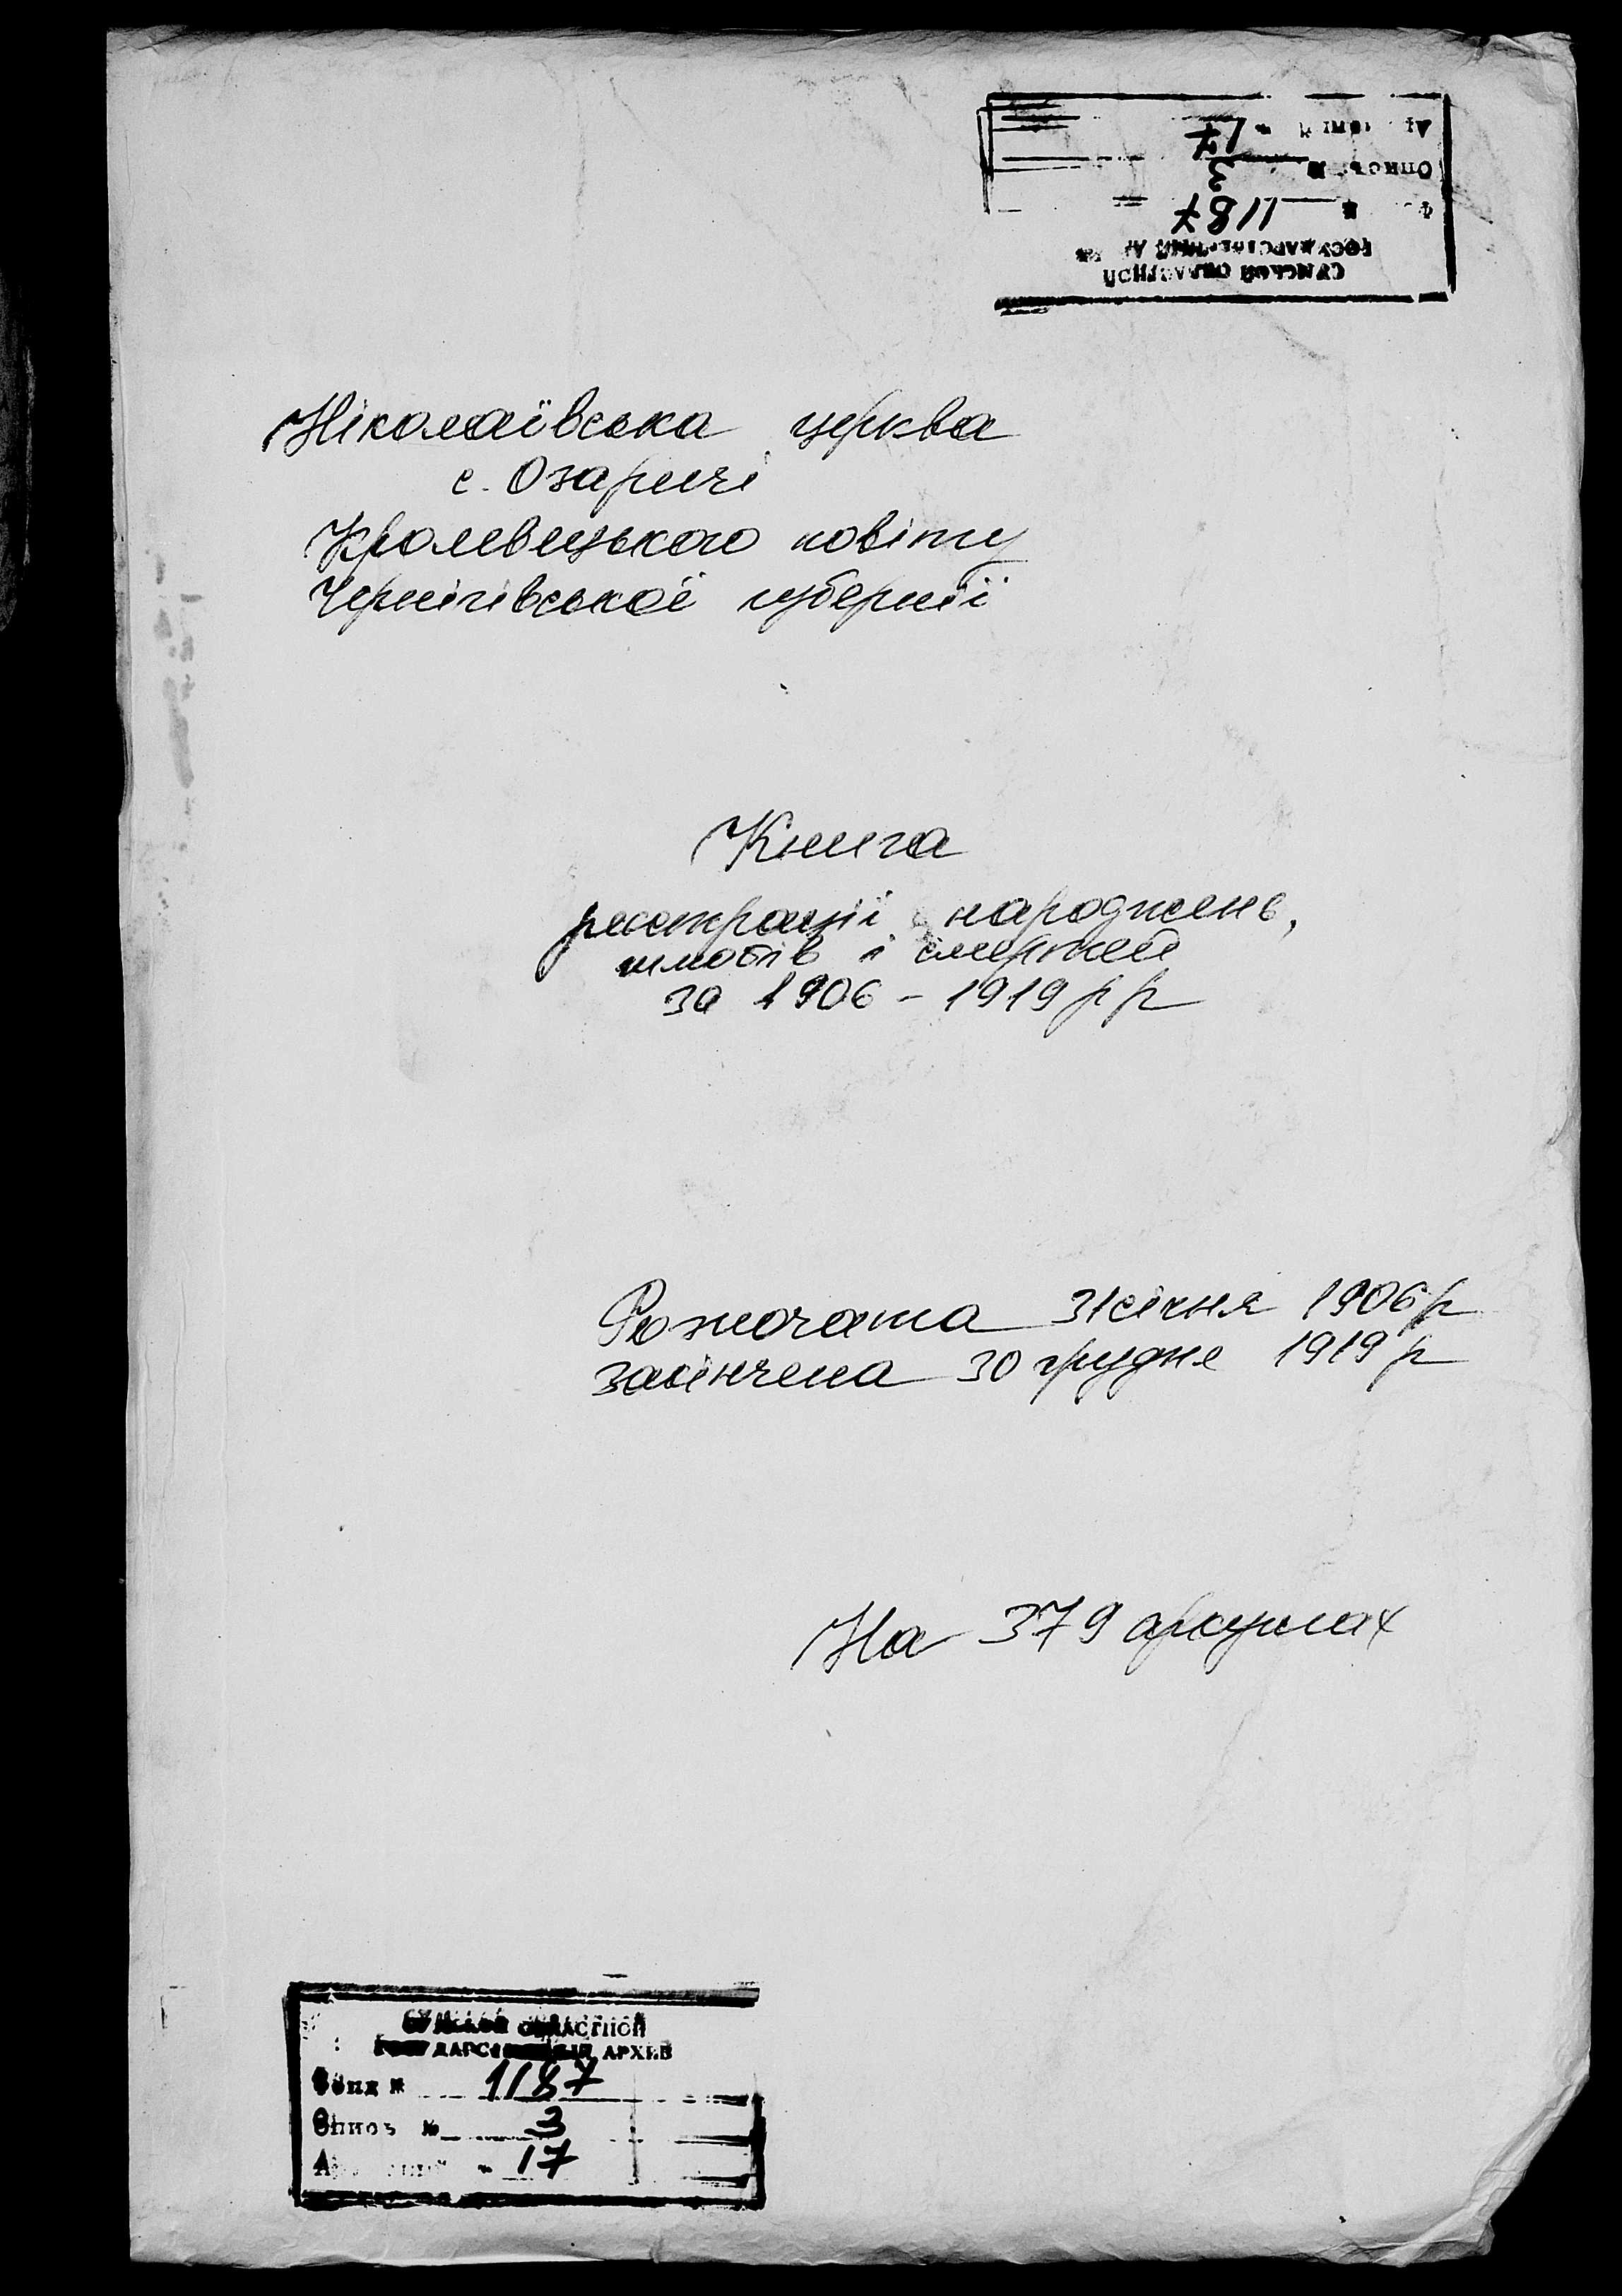 СУМСКОЙ ОБЛАСТНОЙ
ГОСУДАРСТВЕННЫЙ
1187
Опись № 3
17
Ніколаївська церква
с. Озаричі
Кролевецького повіту
Чернігівської губернії
Книга
реєстрації народжень,
шлюбів і смертей
за 1906 – 1919 р р
Розпочата 31 січня 1906 р
закінчена 30 грудня 1919 р
На 379 аркушах
СУМСКОЙ ОБЛАСТНОЙ
ГОСУДАРСТВЕННЫЙ АРХИВ
Фонд № 1187
Опись № 3
17